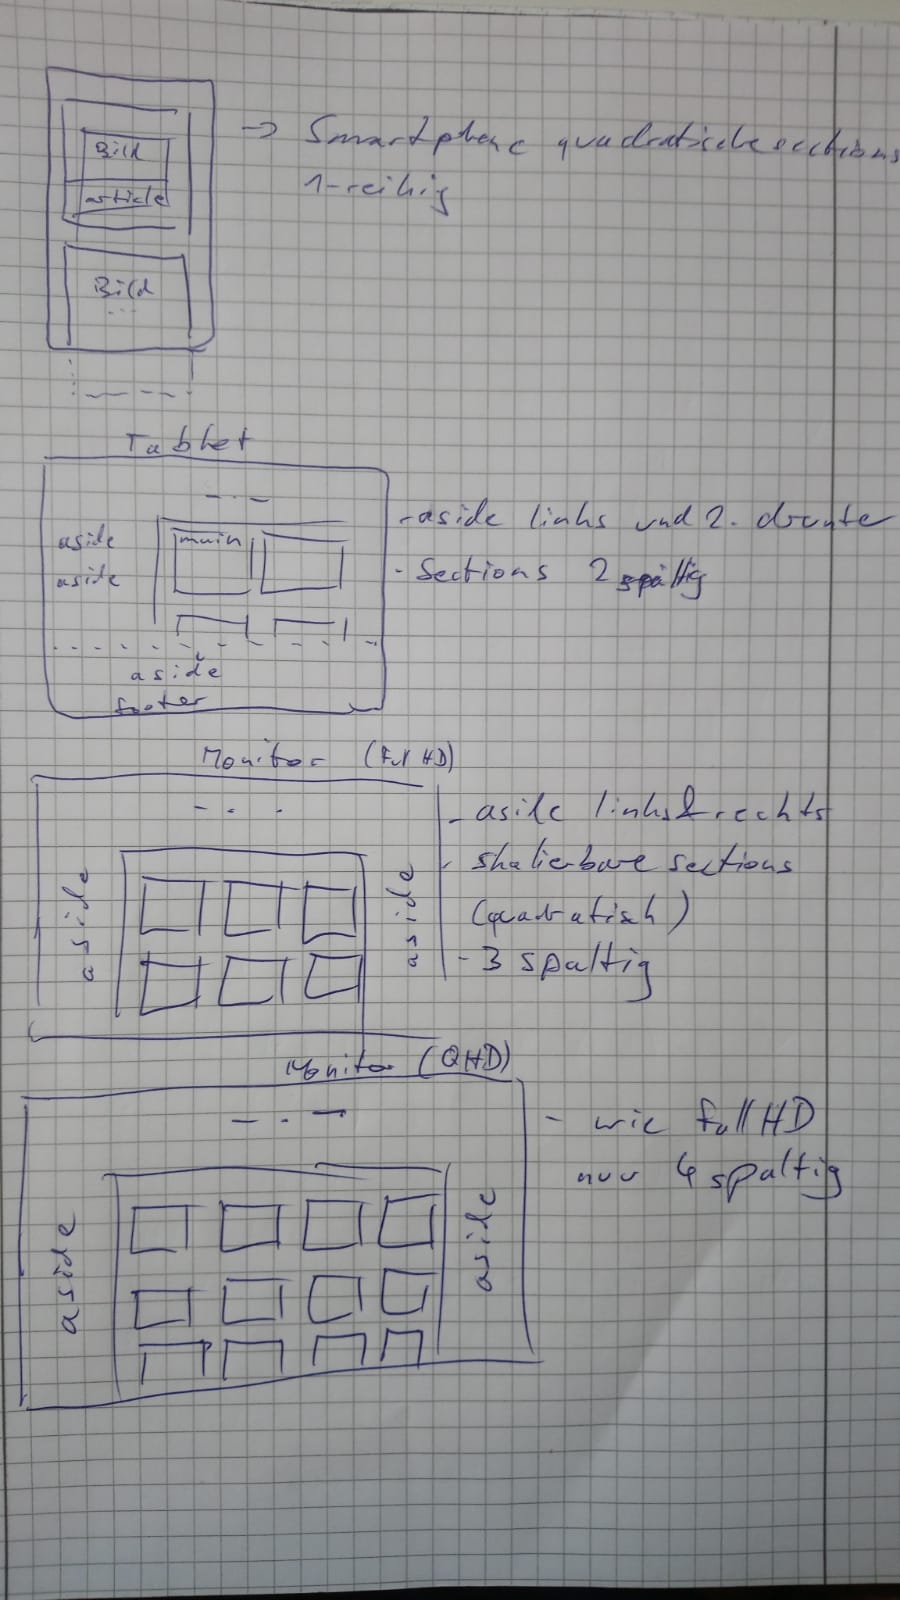 Bild
article
Bild
...
-> Smartphone quadratische sections
1-reihig
Tablet
aside
aside
main
aside
footer
- aside links und 2. drunter
- Sections 2 spaltig
Monitor (Full HD)
aside
aside
- aside links & rechts
- skalierbare sections
(quadratisch)
- 3 spaltig
Monitor (QHD)
aside
aside
- wie full HD
nur 4 spaltig